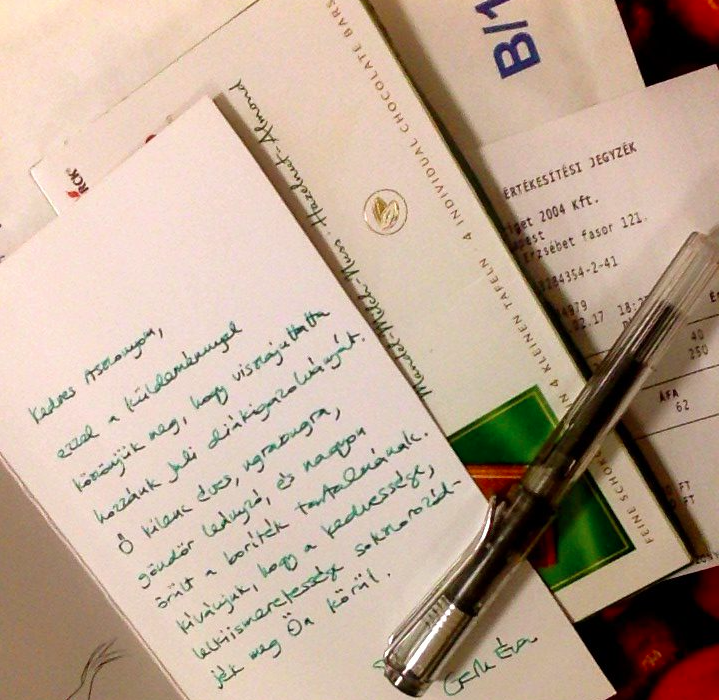 Kedves Asszonyom,
ezzel a küldeménnyel
köszönjük meg, hogy visszajuttatta
hozzánk Juli diákigazolványát.
Ő kilenc éves, ugrabugra,
göndör leányzó, és nagyon
örült a boríték tartalmának.
Kívánjuk, hogy a kedvessége,
lelkiismeretessége sokszorozód-
jék meg Ön körül.
Éva
RCK
Mandel-Milch-Nuss · Hazelnut-Almond
4 KLEINEN TAFELN · 4 INDIVIDUAL CHOCOLATE BARS
FEINE
B/1
ÉRTÉKESÍTÉSI JEGYZÉK
2004 Kft.
Erzsébet fasor 121.
284354-2-41
4979
22.17 18:2
40
250
ÁFA
62
FT
FT